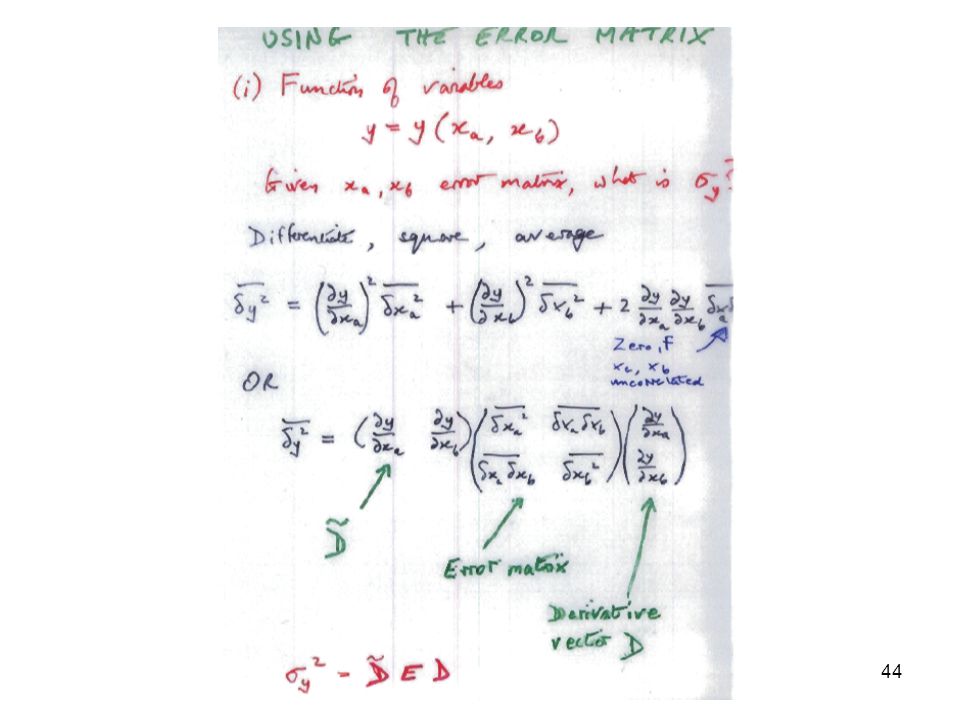 USING THE ERROR MATRIX
(i) Function of variables
y = y (xₐ, x_b)
Given xₐ, x_b error matrix, what is σ_y?
Differentiate, square, average
\overline{δy²} = (∂y/∂xₐ)² \overline{δxₐ²} + (∂y/∂x_b)² \overline{δx_b²} + 2 ∂y/∂xₐ ∂y/∂x_b \overline{δxₐδ
Zero, if
xₐ, x_b
uncorrelated
OR
\overline{δy²} = (∂y/∂xₐ ∂y/∂x_b) (\overline{δxₐ²} \overline{δxₐ δx_b} ; \overline{δxₐ δx_b} \overline{δx_b²}) (∂y/∂xₐ ; ∂y/∂x_b)
D̃
Error matrix
Derivative
vector D
σ_y² = D̃ E D
44